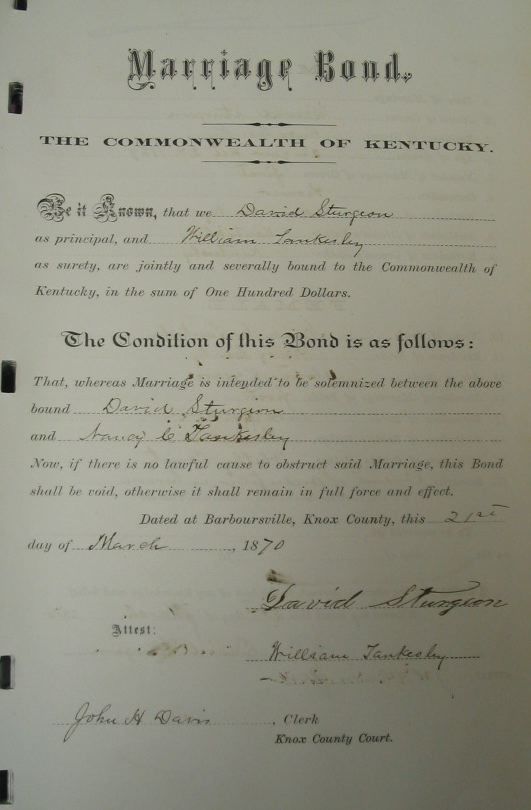 Marriage Bond.
THE COMMONWEALTH OF KENTUCKY.
Be it Known, that we David Sturgeon
as principal, and William Tankesley
as surety, are jointly and severally bound to the Commonwealth of
Kentucky, in the sum of One Hundred Dollars.
The Condition of this Bond is as follows:
That, whereas Marriage is intended to be solemnized between the above
bound David Sturgion
and Nancy C Tankesley
Now, if there is no lawful cause to obstruct said Marriage, this Bond
shall be void, otherwise it shall remain in full force and effect.
Dated at Barboursville, Knox County, this 21st
day of March, 1870
David Sturgeon
Attest:
William Tankesley
John H Davis, Clerk
Knox County Court.